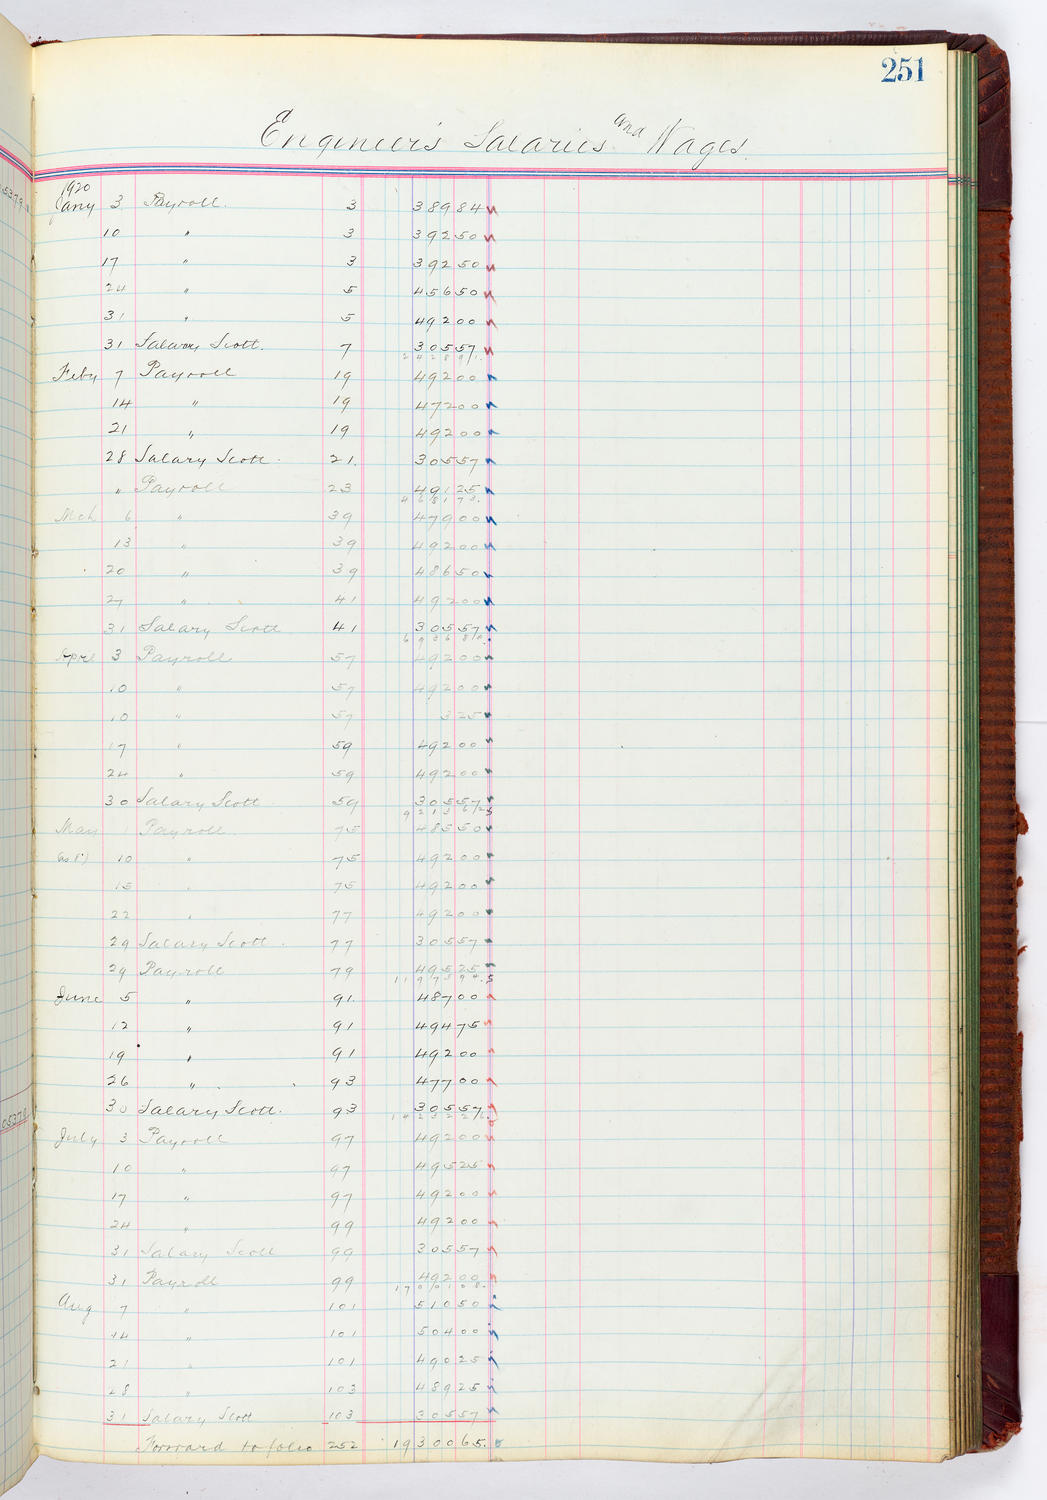 251
Engineer's Salaries and Wages.
1920
Jany 3 Payroll. 3 389 84
10 " 3 392 50
17 " 3 392 50
24 " 5 456 50
31 " 5 492 00
31 Salary Scott. 7 305 57
2428 91
Feby 7 Payroll 19 492 00
14 " 19 472 00
21 " 19 492 00
28 Salary Scott. 21. 305 57
" Payroll 23 491 25
4681 73.
Mch 6 " 39 479 00
13 " 39 492 00
20 " 39 486 50
27 " 41 492 00
31 Salary Scott 41 305 57
6936 80.
Apre 3 Payroll 57 492 00
10 " 57 492 00
10 " 57 3 25
17 " 59 492 00
24 " 59 492 00
30 Salary Scott 59 305 57
9213 62
May 1 Payroll. 75 485 50
10 " 75 492 00
15 " 75 492 00
22 " 77 492 00
29 Salary Scott. 77 305 57
29 Payroll 79 495 25
11975 94.
June 5 " 91. 487 00
12 " 91 494 75
19 " 91 492 00
26 " 93 477 00
30 Salary Scott. 93 305 57.
14232 26.
July 3 Payroll 97 492 00
10 " 97 495 25
17 " 97 492 00
24 " 99 492 00
31 Salary Scott 99 305 57
31 Payroll 99 492 00
17001 08.
Aug 7 " 101 510 50
14 " 101 504 00
21 " 101 490 25
28 " 103 489 25
31 Salary Scott 103 305 57
Forward to folio 252 19300 65.